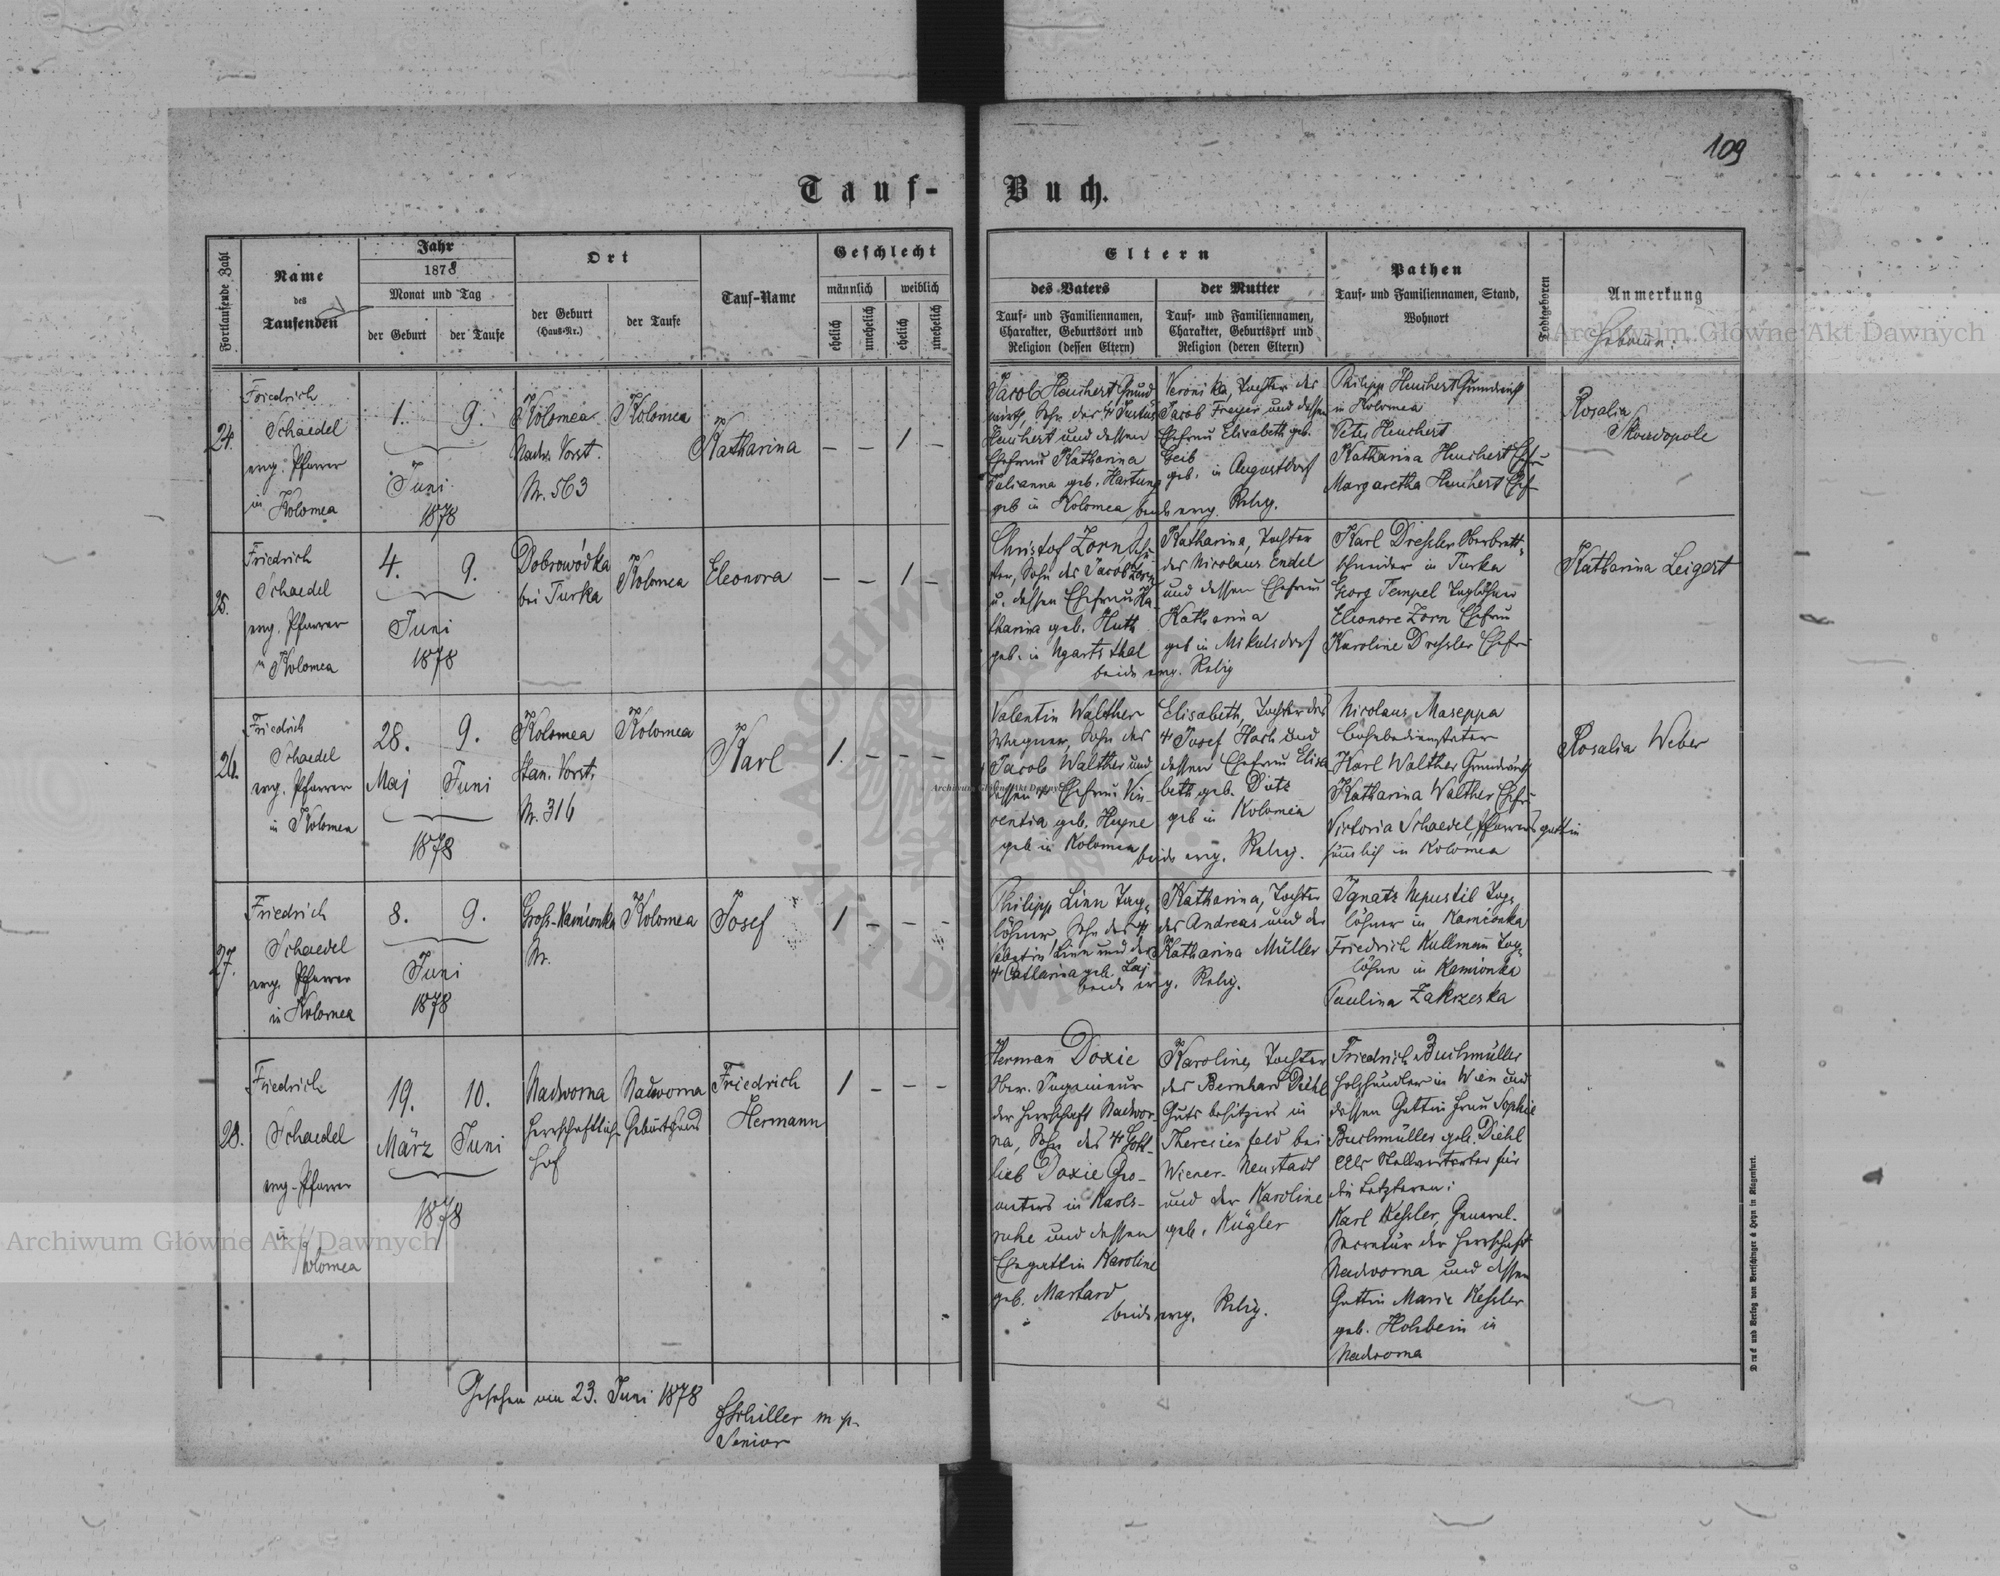 109
Tauf-Buch.
Fortlaufende Zahl
Name
des
Taufenden
Jahr
1878
Monat und Tag
der Geburt
der Taufe
Ort
der Geburt
(Haus-Nr.)
der Taufe
Tauf-Name
Geschlecht
männlich
weiblich
ehelich
unehelich
ehelich
unehelich
Eltern
des Vaters
Tauf- und Familiennamen,
Charakter, Geburtsort und
Religion (dessen Eltern)
der Mutter
Tauf- und Familiennamen,
Charakter, Geburtsort und
Religion (deren Eltern)
Pathen
Tauf- und Familiennamen, Stand,
Wohnort
Todtgeboren
Anmerkung
Hebamme:
24.
Friedrich
Schaedel
evg. Pfarrer
in Kolomea
1. 9.
Juni
1878
Kolomea
Nadw. Vorst.
Nr. 563
Kolomea
Katharina
– – 1 –
Jacob Heuchert Grund
wirth, Sohn des † Justus
Heuchert und dessen
Ehefrau Katharina
Julianna geb. Hartung
geb in Kolomea
Veronika, Tochter des
Jacob Freyer und dessen
Ehefrau Elisabeth geb.
Geib
geb. in Augustdorf
beide evg. Relig.
Philipp Heuchert Grundwirth
in Kolomea
Peter Heuchert
Katharina Heuchert Ehefr
Margaretha Heuchert Ehef
Rosalia
Skowdopole
25.
Friedrich
Schaedel
evg. Pfarrer
in Kolomea
4. 9.
Juni
1878
Dobrowódka
bei Turka
Kolomea
Eleonora
– – 1 –
Christof Zorn,
Sohn des Jacob Zorn
u. dessen Ehefrau Ka-
tharina geb. Huth
geb. in Ugartsthal
Katharina, Tochter
des Nicolaus Endel
und dessen Ehefrau
Katharina
geb in Mikulsdorf
beide evg. Relig
Karl Dressler Oberbrett-
schneider in Turka
Georg Tempel Taglöhner
Eleonore Zorn Ehefrau
Karoline Dressler Ehefr
Katharina Leigert
26.
Friedrich
Schaedel
evg. Pfarrer
in Kolomea
28. 9.
Maj Juni
1878
Kolomea
Stan. Vorst.
Nr. 316
Kolomea
Karl
1. – – –
Valentin Walther
Wagner, Sohn des
Jacob Walther und
dessen † Ehefrau Vin-
centia geb. Heyne
geb in Kolomea
Elisabeth, Tochter des
† Josef Hach und
dessen Ehefrau Elisa
beth geb. Dietz
geb in Kolomea
beide evg. Relig.
Nicolaus Maseppa
Karl Walther Grundwirth
Katharina Walther Ehefr
Victoria Schaedel, Pfarrersgattin
sämtlich in Kolomea
Rosalia Weber
27.
Friedrich
Schaedel
evg. Pfarrer
in Kolomea
8. 9.
Juni
1878
Gross-Kamionka
Nr.
Kolomea
Josef
1 – – –
Philipp Linn Tag-
löhner Sohn des †
Valentin Linn und der
† Catharina geb.
Katharina, Tochter
des Andreas und der
Katharina Müller
beide evg. Relig.
Ignatz Nepustil Tag-
löhner in Kamionka
Friedrich Kullmann Tag-
löhner in Kamionka
Paulina Zakrzeska
28.
Friedrich
Schaedel
evg. Pfarrer
in
Kolomea
19. 10.
März Juni
1878
Nadworna
Herrschaftlich
Hof
Nadworna
Geburtshaus
Friedrich
Hermann
1 – – –
Herman Doxie
Ober-Ingenieur
der Herrschaft Nadwor-
na, Sohn des † Gott-
lieb Doxie Geo-
meters in Karls-
ruhe und dessen
Ehegattin Karoline
geb. Martard
Karoline, Tochter
des Bernhard Diehl
Guts besitzers in
Theresienfeld bei
Wiener-Neustadt
und der Karoline
geb. Kügler
beide evg. Relig.
Friedrich Buchmüller
Holzhändler in Wien und
dessen Gattin Frau Sophie
Buchmüller geb. Diehl
Als Stellvertreter für
die Letzteren:
Karl Kessler, General-
Secretär der Herrschaft
Nadworna und dessen
Gattin Marie Kessler
geb. Holzbein in
Nadworna
Gesehen am 23. Juni 1878
Schiller m p.
Senior
Druck und Verlag von Bertschinger & Heyn in Klagenfurt.
Archiwum Główne Akt Dawnych
Archiwum Główne Akt Dawnych
Archiwum Główne Akt Dawnych